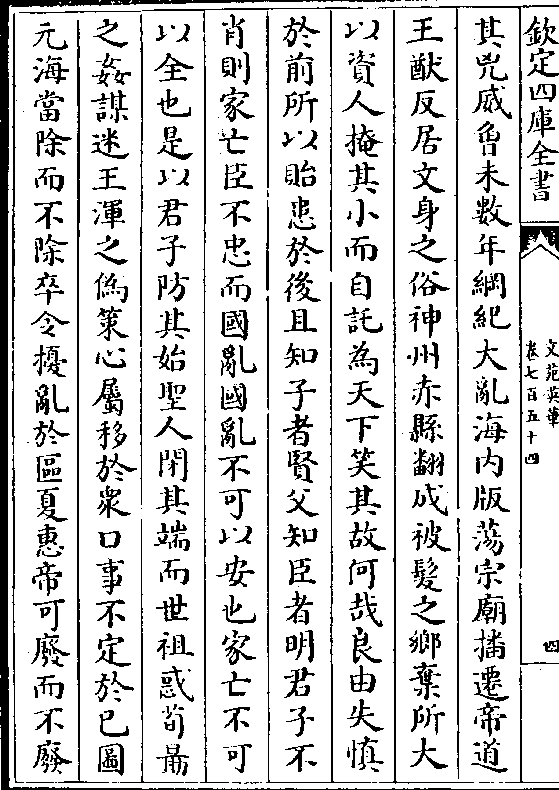 欽定四庫全書
文苑英華
卷七百五十四
四
其兇威曾未數年綱紀大亂海内版蕩宗廟播遷帝道
王猷反居文身之俗神州赤縣翻成被髮之鄉棄所大
以資人掩其小而自託為天下笑其故何哉良由失慎
於前所以貽患於後且知子者賢父知臣者明君子不
肖則家亡臣不忠而國亂國亂不可以安也家亡不可
以全也是以君子防其始聖人閉其端而世祖惑荀勗
之姦謀迷王渾之偽策心屬移於衆口事不定於已圖
元海當除而不除卒令擾亂於區夏惠帝可廢而不廢